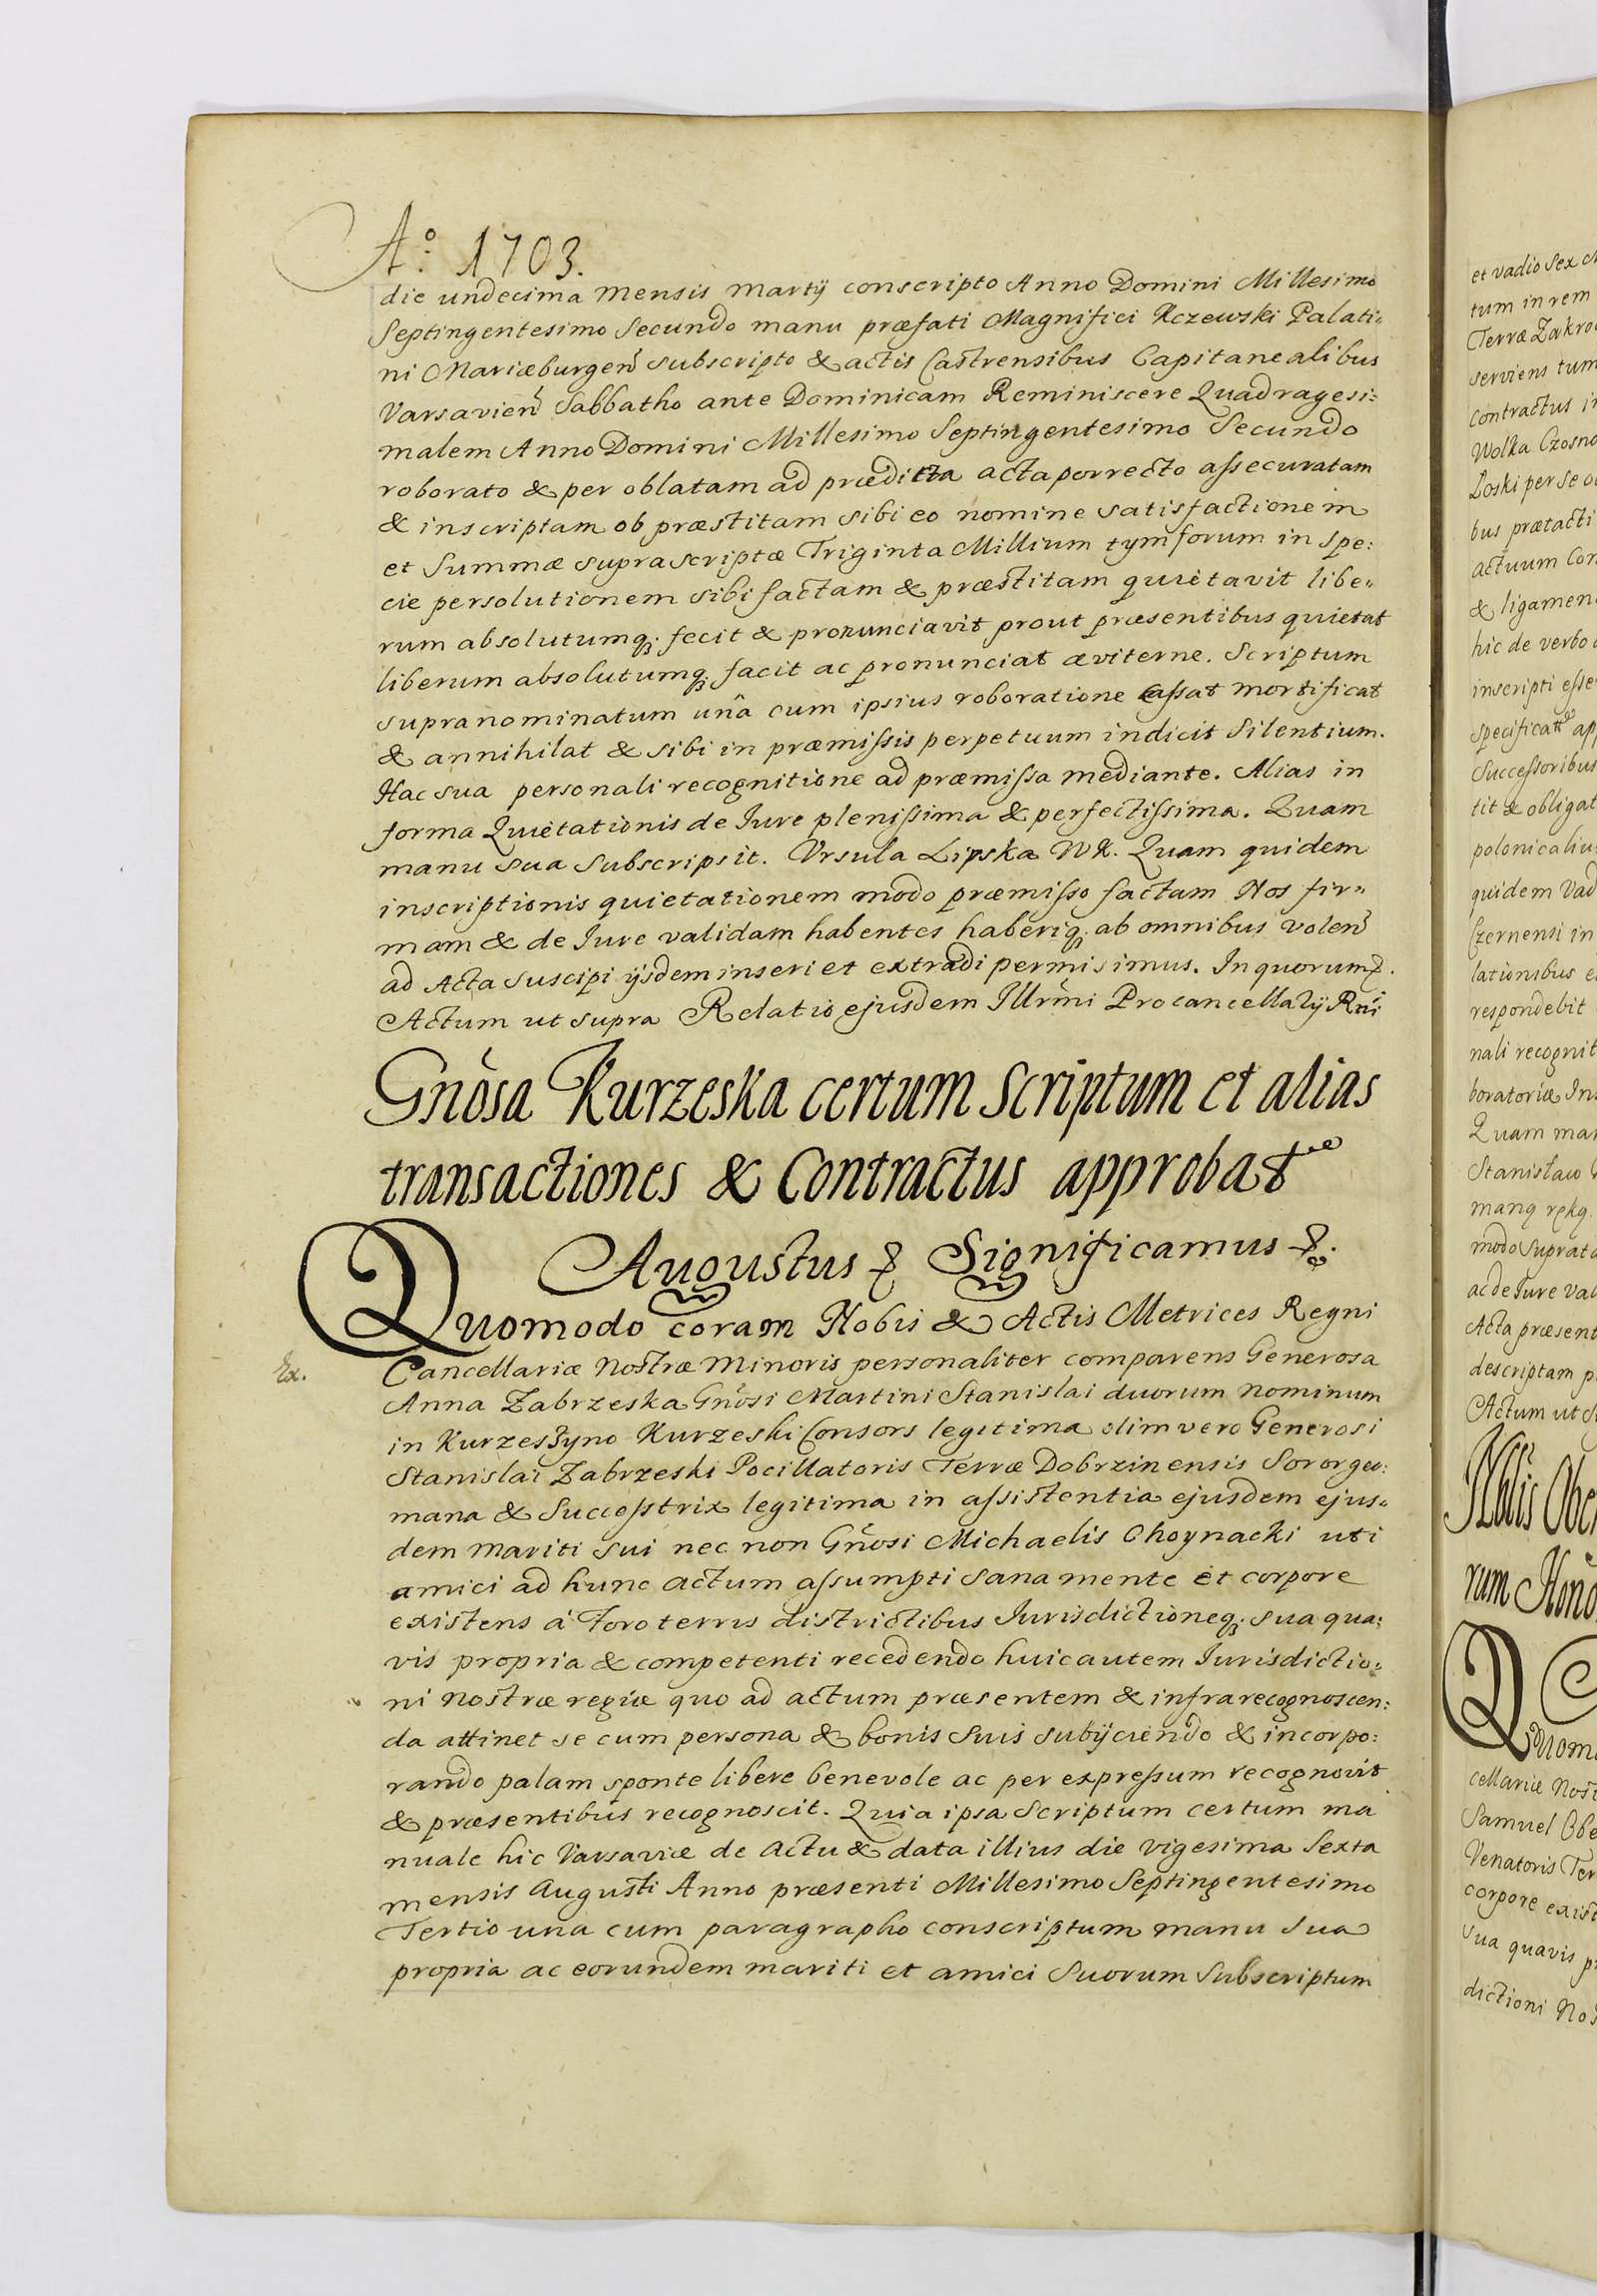 Aº: 1703.
die undecima Mensis Martÿ conscripto Anno Domini Millesimo
Septingentesimo Secundo manu præfati Magnifici Kczewski Palati=
ni Mariæburgeñ subscripto & actis Castrensibus Capitanealibus
Varsavieñ Sabbatho ante Dominicam Reminiscere Quadragesi=
malem Anno Domini Millesimo Septingentesimo Secundo
roborato & per oblatam ad præditta acta porrecto assecuratam
& inscriptam ob præstitam sibi eo nomine satisfactionem
et Summæ suprascriptæ Triginta Millium tymforum in Spe=
cie persolutionem sibi factam & præstitam quietavit libe=
rum absolutumq; fecit & pronunciavit prout præsentibus quietat
liberum absolutumq; facit ac pronunciat æviterne. Scriptum
supranominatum unâ cum ipsius roboratione cassat mortificat
& annihilat & sibi in præmissis perpetuum indicit Silentium.
Hac sua personali recognitione ad præmissa mediante. Alias in
forma Quietationis de Iure plenissima & perfectissima. Quam
manu sua subscripsit. Vrsula Lipska WK. Quam quidem
inscriptionis quietationem modo præmisso factam Nos fir=
mam & de Iure validam habentes haberiq; ab omnibus voleñ
ad Acta suscipi ÿsdem inseri et extradi permisimus. In quorum &.
Actum ut supra Relatio ejusdem Illrm̃i Procancellarÿ Rñi
Gnõsa Kurzeska certum Scriptum et alias
transactiones & Contractus approbat
Augustus & Significamus &.
Quomodo coram Nobis & Actis Metrices Regni
Ex.
Cancellariæ Nostræ Minoris personaliter comparens Generosa
Anna Zabrzeska Gnõsi Martini Stanislai duorum nominum
in Kurzeszyno Kurzeski Consors legitima olim vero Generosi
Stanislai Zabrzeski Pocillatoris Terræ Dobrzinensis Soror ger=
mana & Successtrix legitima in assistentia ejusdem ejus=
dem mariti sui nec non Gnõsi Michaelis Choynacki uti
amici ad hunc actum assumpti sana mente et corpore
existens à Foro terris districtibus Iurisdictioneq; sua qua=
vis propria & competenti recedendo huic autem Iurisdictio=
ni nostræ regiæ quo ad actum præsentem & infrarecognoscen=
da attinet se cum persona & bonis suis subÿciendo & incorpo=
rando palam sponte libere benevole ac per expressum recognovit
& præsentibus recognoscit. Quia ipsa Scriptum certum ma
nuale hic Varsaviæ de Actu & data illius die vigesima Sexta
mensis Augusti Anno præsenti Millesimo Septingentesimo
Tertio una cum paragrapho conscriptum manu sua
propria ac eorundem mariti et amici suorum subscriptum
et vadio Sex
tum in rem
Terræ
serviens tum
contractus
Wolka
Loski per se
bus prætacti
actuum
& ligamen
hic de verbo
inscripti esse
Successoribus
tit & obligat
quidem
Czernensi in
lationibus
respondebit
nali recognit
boratoriæ
Quam
Stanislaw
modo
ac de Iure
Acta præsent
descriptam
Actum ut
Nblis
rum
Quom
cellariæ
Samuel
Venatoris
corpore
sua quavis
dictioni